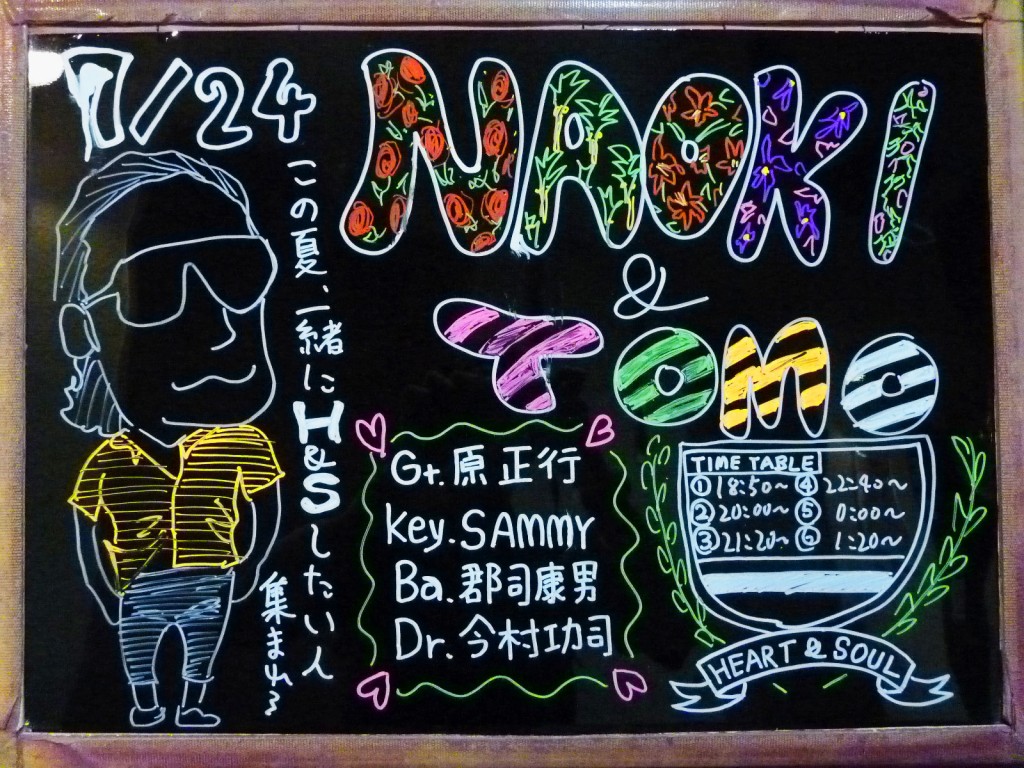 7/24
NAOKI
&
TOMO
この夏、一緒にH&Sしたい人
集まれ〜
Gt. 原 正行
Key. SAMMY
Ba. 郡司康男
Dr. 今村功司
TIME TABLE
① 18:50〜 ④ 22:40〜
② 20:00〜 ⑤ 0:00〜
③ 21:20〜 ⑥ 1:20〜
HEART & SOUL